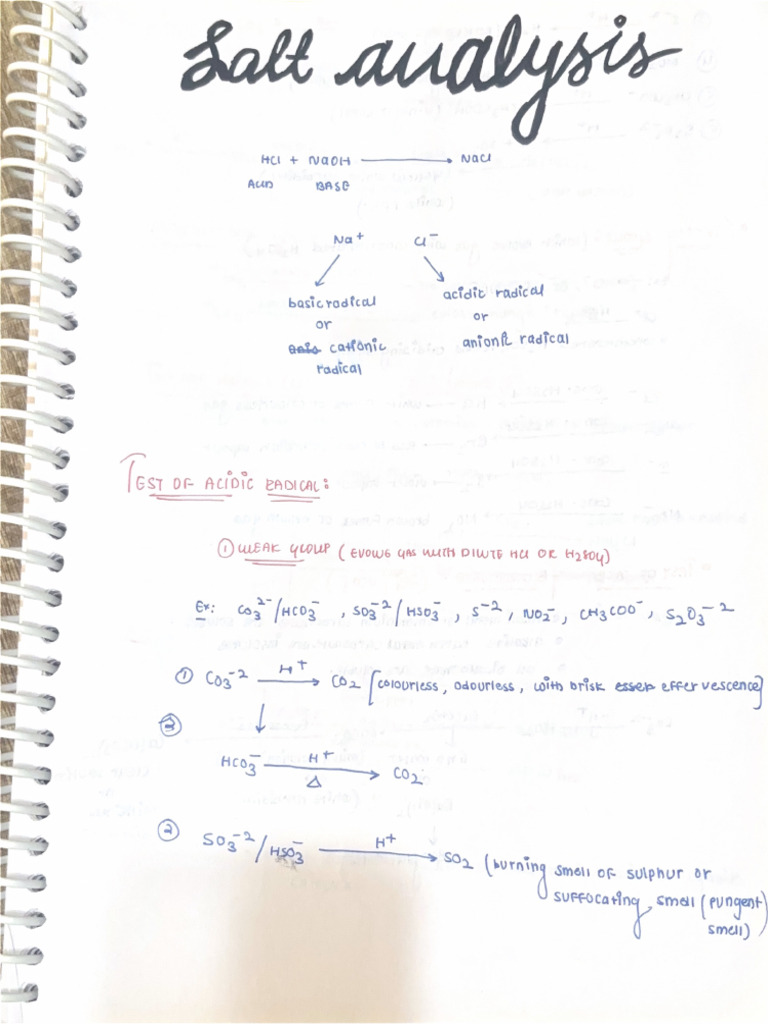 Salt analysis
HCl + NaOH ⟶ NaCl
ACID BASE
Na⁺ Cl⁻
basic radical
or
cationic
radical
acidic radical
or
anionic radical
TEST OF ACIDIC RADICAL:
① WEAK GROUP (EVOLVE GAS WITH DILUTE HCl OR H₂SO₄)
Ex: CO₃²⁻/HCO₃⁻, SO₃⁻²/HSO₃⁻, S⁻², NO₂⁻, CH₃COO⁻, S₂O₃⁻²
① CO₃⁻² —H⁺→ CO₂ [colourless, odourless, with brisk effervescence]
HCO₃⁻ —H⁺/△→ CO₂
② SO₃⁻²/HSO₃⁻ —H⁺→ SO₂ (burning smell of sulphur or
suffocating smell (pungent
smell)